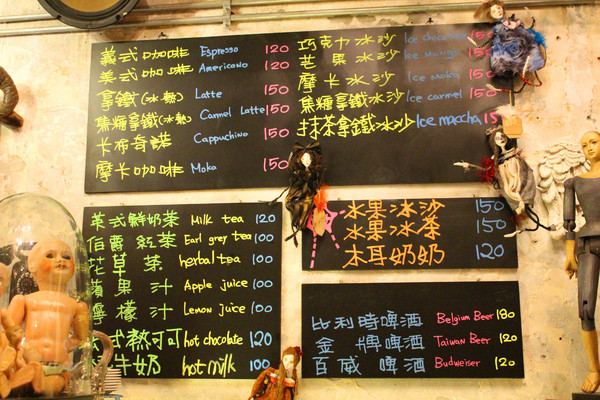 義式咖啡 Espresso 120
美式咖啡 Americano 120
拿鐵(冰/熱) Latte 150
焦糖拿鐵(冰/熱) Carmel Latte 150
卡布奇諾 Cappuchino 150
摩卡咖啡 Moka 150
巧克力冰沙 Ice chocolate 150
芒果冰沙 Ice Mango
摩卡冰沙 Ice Moka 150
焦糖拿鐵冰沙 Ice carmel 150
抹茶拿鐵冰沙 Ice maccha
英式鮮奶茶 Milk tea 120
伯爵紅茶 Earl grey tea 100
花草茶 herbal tea 100
蘋果汁 Apple juice 100
檸檬汁 Lemon juice 100
式熱可可 hot chocolate 120
牛奶 hot milk 100
水果冰沙 150
水果冰茶 150
木耳奶奶 120
比利時啤酒 Belgium Beer 180
金牌啤酒 Taiwan Beer 120
百威啤酒 Budweiser 120